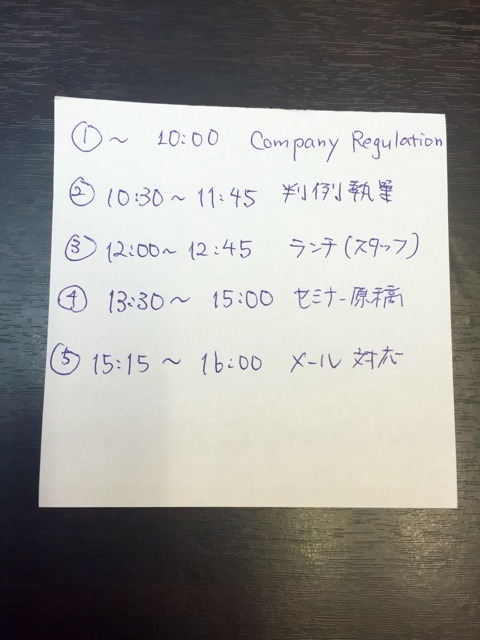 ① ~ 10:00 Company Regulation
② 10:30 ~ 11:45 判例執筆
③ 12:00 ~ 12:45 ランチ(スタッフ)
④ 13:30 ~ 15:00 セミナー原稿
⑤ 15:15 ~ 16:00 メール対応